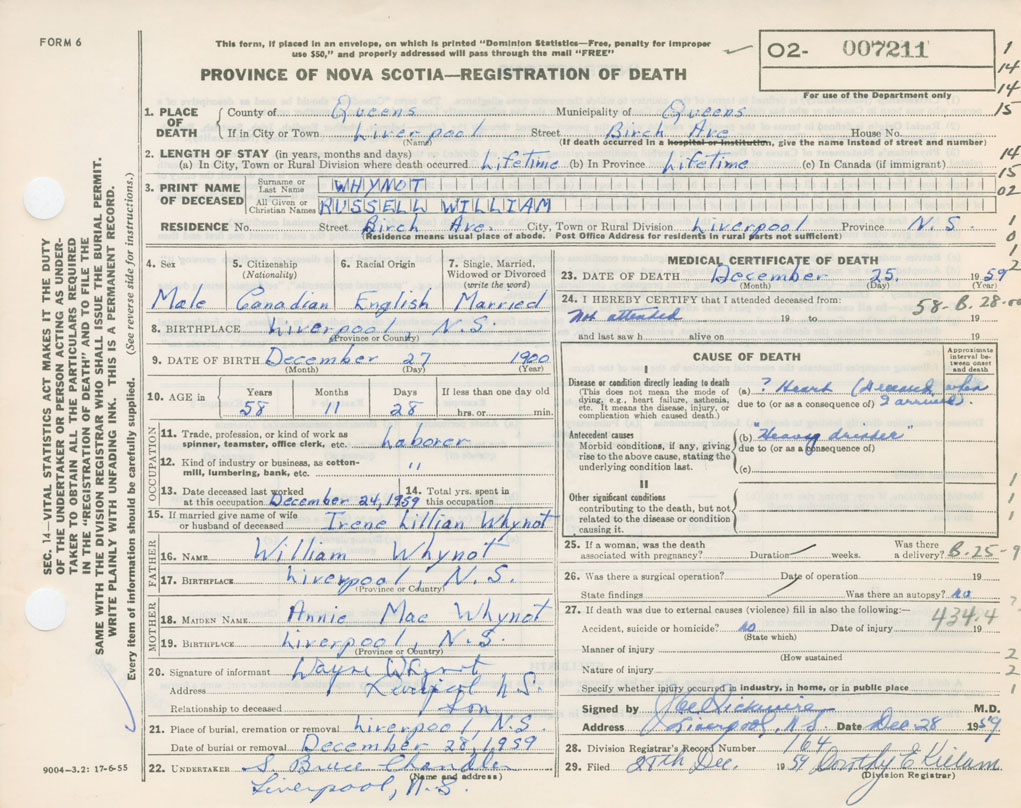 FORM 6
This form, if placed in an envelope, on which is printed "Dominion Statistics—Free, penalty for improper
use $50," and properly addressed will pass through the mail "FREE"
O2- 007211
For use of the Department only
PROVINCE OF NOVA SCOTIA—REGISTRATION OF DEATH
1. PLACE OF DEATH County of Queens Municipality of Queens
If in City or Town Liverpool Street Birch Ave House No.
(Name) (If death occurred in a hospital or institution, give the name instead of street and number)
2. LENGTH OF STAY (in years, months and days)
(a) In City, Town or Rural Division where death occurred Lifetime (b) In Province Lifetime (c) In Canada (if immigrant)
3. PRINT NAME OF DECEASED Surname or Last Name WHYNOT
All Given or Christian Names RUSSELL WILLIAM
RESIDENCE No. Street Birch Ave. City, Town or Rural Division Liverpool Province N.S
(Residence means usual place of abode. Post Office Address for residents in rural parts not sufficient)
4. Sex 5. Citizenship (Nationality) 6. Racial Origin 7. Single, Married, Widowed or Divorced (write the word)
Male Canadian English Married
8. BIRTHPLACE Liverpool, N.S.
(Province or Country)
9. DATE OF BIRTH December 27 1900
(Month) (Day) (Year)
10. AGE in Years Months Days If less than one day old
58 11 28 hrs. or min.
OCCUPATION
11. Trade, profession, or kind of work as
spinner, teamster, office clerk, etc. Laborer
12. Kind of industry or business, as cotton-
mill, lumbering, bank, etc. "
13. Date deceased last worked at this occupation December 24, 1959 14. Total yrs. spent in this occupation
15. If married give name of wife
or husband of deceased Irene Lillian Whynot
FATHER
16. NAME William Whynot
17. BIRTHPLACE Liverpool, N.S.
(Province or Country)
MOTHER
18. MAIDEN NAME Annie Mac Whynot
19. BIRTHPLACE Liverpool, N.S.
(Province or Country)
20. Signature of informant Wayne Whynot
Address Liverpool N.S.
Relationship to deceased Son
21. Place of burial, cremation or removal Liverpool, N.S
Date of burial or removal December 28, 1959
22. UNDERTAKER S. Bruce Chandler
(Name and address)
Liverpool, N.S.
9004-3.2: 17-6-55
MEDICAL CERTIFICATE OF DEATH
23. DATE OF DEATH December 25 1959
(Month) (Day)
24. I HEREBY CERTIFY that I attended deceased from: 58-B.28.00
Not attended 19 to 19
and last saw h alive on 19
CAUSE OF DEATH
Approximate interval between onset and death
I
Disease or condition directly leading to death
(This does not mean the mode of
dying, e.g., heart failure, asthenia,
etc. It means the disease, injury, or
complication which caused death.)
(a) ? Heart (Deceased when
due to (or as a consequence of) I arrived).
Antecedent causes
Morbid conditions, if any, giving
rise to the above cause, stating the
underlying condition last.
(b) "Heavy drinker"
due to (or as a consequence of)
(c)
II
Other significant conditions
contributing to the death, but not
related to the disease or condition
causing it.
25. If a woman, was the death
associated with pregnancy? Duration weeks. Was there a delivery? B.25-9
26. Was there a surgical operation? Date of operation 19
State findings Was there an autopsy? no
27. If death was due to external causes (violence) fill in also the following:— 434.4
Accident, suicide or homicide? no Date of injury 19
(State which)
Manner of injury
(How sustained
Nature of injury
Specify whether injury occurred in industry, in home, or in public place
Signed by M.D.
Address Liverpool, N.S. Date Dec 28 1959
28. Division Registrar's Record Number 164
29. Filed 28th Dec. 1959 Dorothy E Killam
(Division Registrar)
1
14
14
15
14
15
02
1
0
1
2
1
1
1
?
2
2
1
SEC. 14—VITAL STATISTICS ACT MAKES IT THE DUTY
OF THE UNDERTAKER OR PERSON ACTING AS UNDER-
TAKER TO OBTAIN ALL THE PARTICULARS REQUIRED
IN THE "REGISTRATION OF DEATH" AND TO FILE THE
SAME WITH THE DIVISION REGISTRAR WHO SHALL ISSUE THE BURIAL PERMIT.
WRITE PLAINLY WITH UNFADING INK. THIS IS A PERMANENT RECORD.
Every item of information should be carefully supplied. (See reverse side for instructions.)